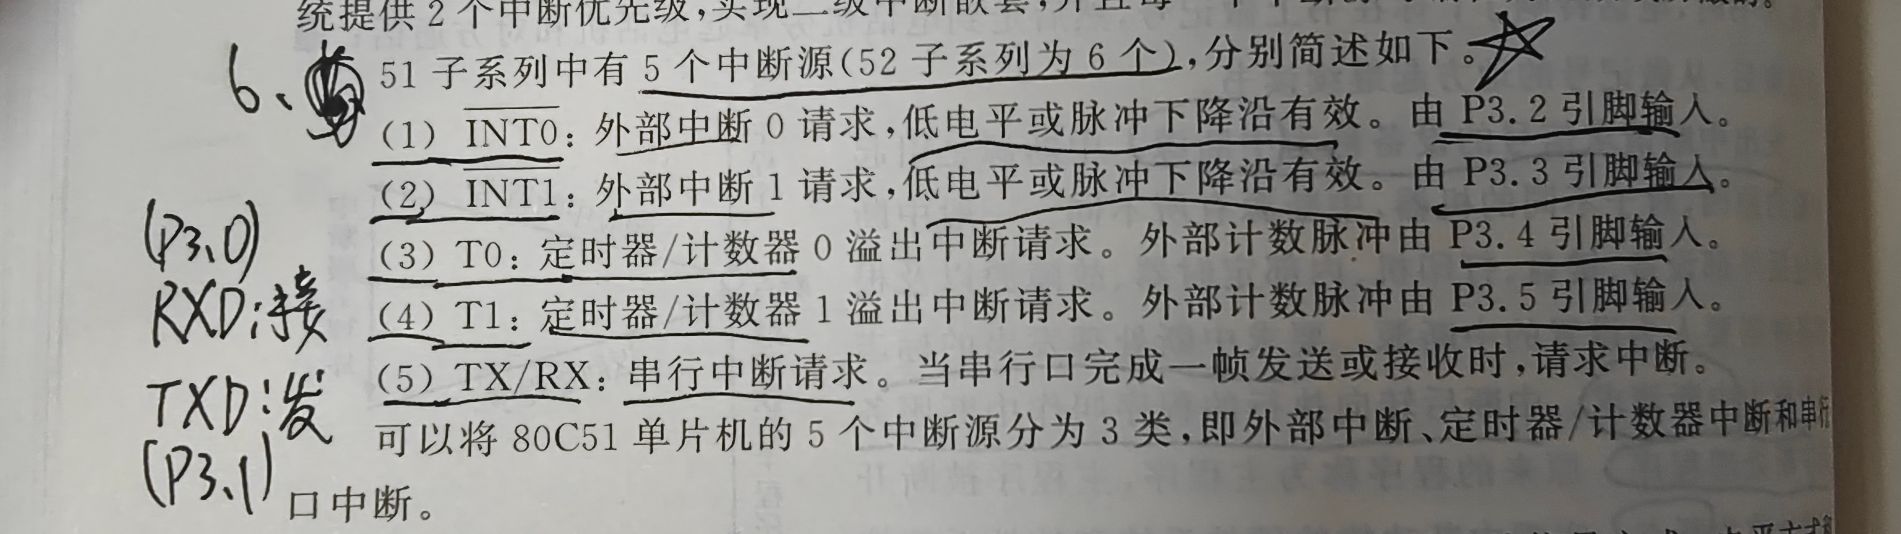 统提供 2 个中断优先级,实现二级中断嵌套,并且每一个中断
6、
51 子系列中有 5 个中断源(52 子系列为 6 个),分别简述如下。
(1) INT0: 外部中断 0 请求,低电平或脉冲下降沿有效。由 P3.2 引脚输入。
(2) INT1: 外部中断 1 请求,低电平或脉冲下降沿有效。由 P3.3 引脚输入。
(P3.0)
(3) T0: 定时器/计数器 0 溢出中断请求。外部计数脉冲由 P3.4 引脚输入。
RXD:接
(4) T1: 定时器/计数器 1 溢出中断请求。外部计数脉冲由 P3.5 引脚输入。
TXD:发
(5) TX/RX: 串行中断请求。当串行口完成一帧发送或接收时,请求中断。
(P3.1)
可以将 80C51 单片机的 5 个中断源分为 3 类,即外部中断、定时器/计数器中断和串行
口中断。